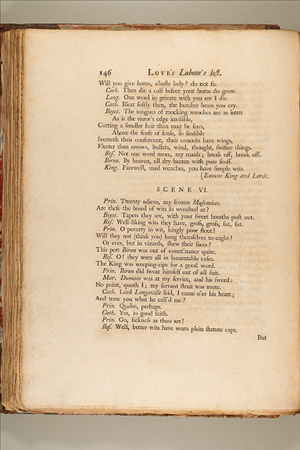 146 LOVE's Labour's lost.
Will you give horns, chaste lady? do not so.
Cath. Then die a calf before your horns do grow.
Long. One word in private with you ere I die.
Cath. Bleat softly then, the butcher hears you cry.
Boyet. The tongues of mocking wenches are as keen
As is the razor's edge invisible,
Cutting a smaller hair than may be seen,
Above the sense of sense, so sensible
Seemeth their conference, their conceits have wings,
Fleeter than arrows, bullets, wind, thought, swifter things.
Ros. Not one word more, my maids; break off, break off.
Biron. By heaven, all dry-beaten with pure scoff.
King. Farewel, mad wenches, you have simple wits.
[Exeunt King and Lords.
SCENE VI.
Prin. Twenty adieus, my frozen Muscovites.
Are these the breed of wits so wondred at?
Boyet. Tapers they are, with your sweet breaths puft out.
Ros. Well-liking wits they have, gross, gross, fat, fat.
Prin. O poverty in wit, kingly poor flout!
Will they not (think you) hang themselves to-night?
Or ever, but in vizards, shew their faces?
This pert Biron was out of count'nance quite.
Ros. O! they were all in lamentable cases.
The King was weeping-ripe for a good word.
Prin. Biron did swear himself out of all suit.
Mar. Dumain was at my service, and his sword:
No point, quoth I; my servant strait was mute.
Cath. Lord Longaville said, I came o'er his heart;
And trow you what he call'd me?
Prin. Qualm, perhaps.
Cath. Yes, in good faith.
Prin. Go, sickness as thou art!
Ros. Well, better wits have worn plain statute caps.
But